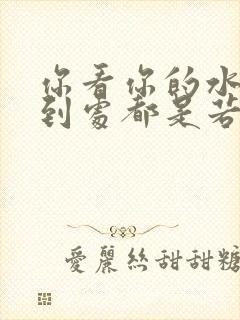 你看你的水
到處都是若
愛麗絲甜甜糖